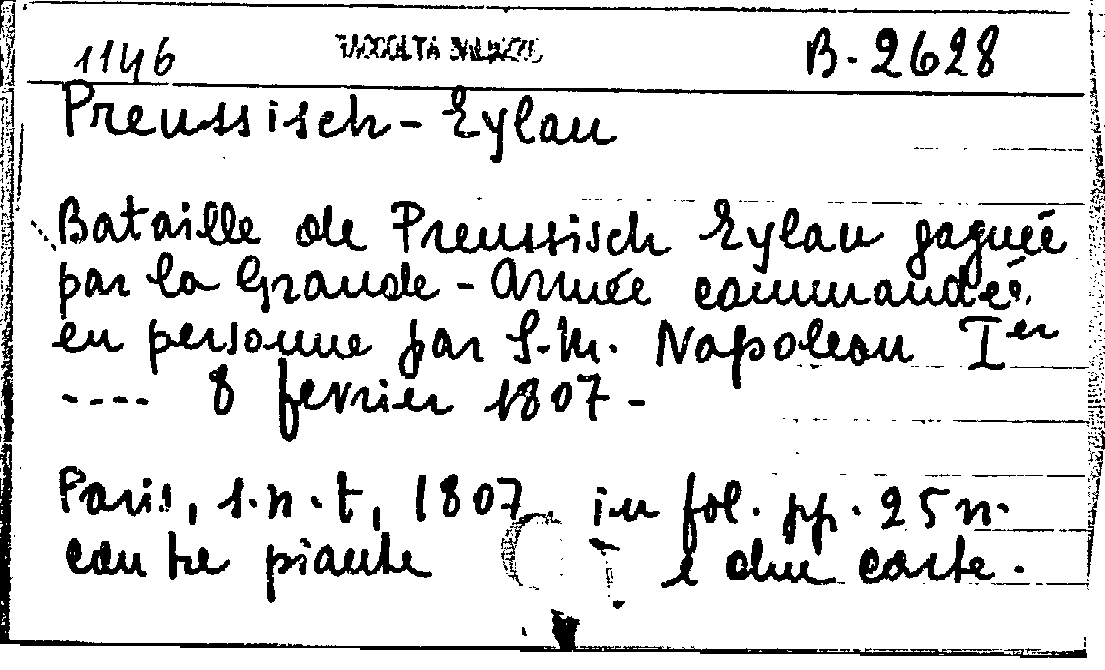 1146 RACCOLTA B-2628
Preussisch-Eylau
Bataille de Preussisch Eylau gagnée
par la Grande-Armée commandée
en personne par S.M. Napoleon Ier
---- 8 fevrier 1807-
Paris, s.n.t, 1807 in fol. pp. 25 n.
con tre piante e due carte.